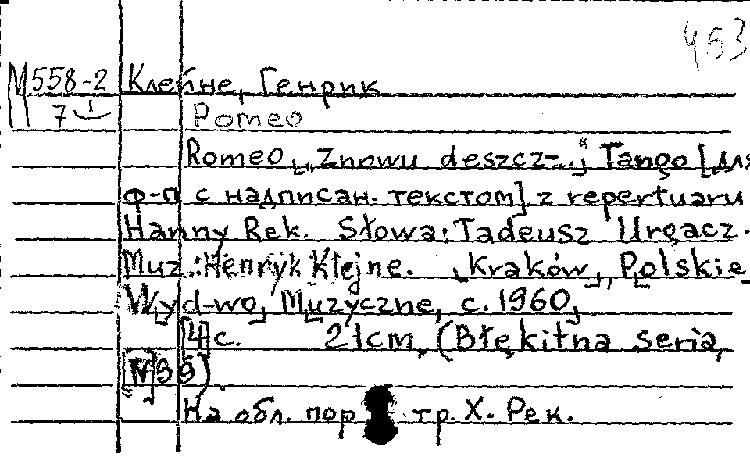 453
М558-2 Клейне, Генрик
7 Ромео
Romeo. „Znowu deszcz...“ Tango [для
ф-п с надписан. текстом] z repertuaru
Hanny Rek. Słowa: Tadeusz Urgacz.
Muz.: Henryk Klejne. Kraków, Polskie
Wyd-wo Muzyczne, c. 1960,
[4]c. 21cm. (Błękitna seria,
N 99).
На обл. пор тр. Х. Рек.